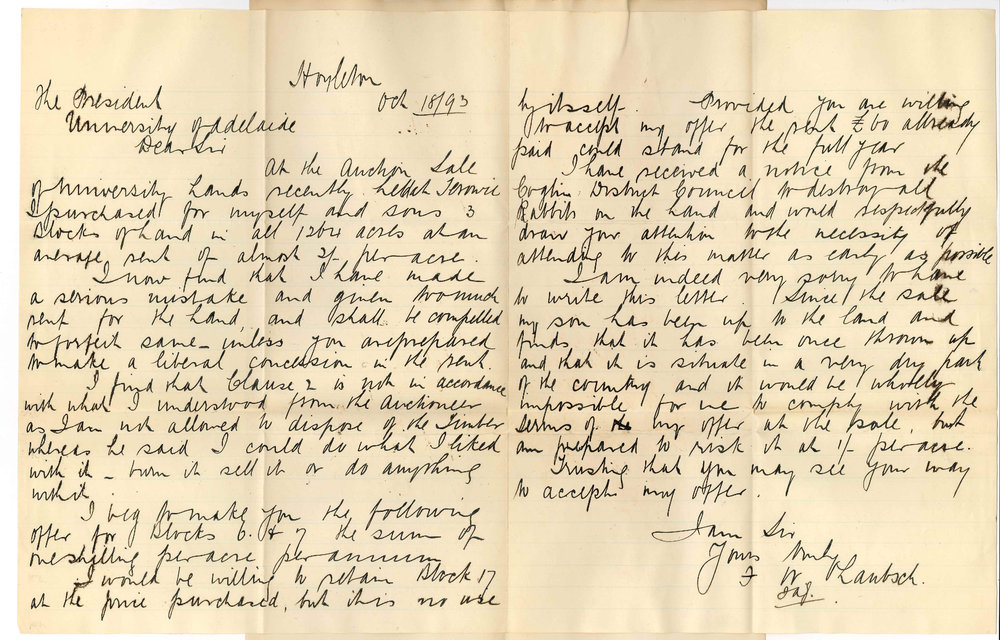 Hoyleton
Oct 18/93
The President
University of Adelaide
Dear Sir
At the Auction Sale
of University Lands recently held at Terowie
I purchased for myself and sons 3
Blocks of Land in all 1264 acres at an
average rent of almost 2/- per acre.
I now find that I have made
a serious mistake and given too much
rent for the Land, and shall be compelled
to forfeit same – unless you are prepared
to make a liberal concession in the rent.
I find that Clause 2 is not in accordance
with what I understood from the Auctioneer
as I am not allowed to dispose of the Timber
whereas he said I could do what I liked
with it – burn it sell it or do anything
with it.
I beg to make you the following
offer for Blocks 6 & 7 the sum of
one shilling per acre per annum
I would be willing to retain Block 17
at the price purchased, but it is no use
by itsself. Provided you are willing
to accept my offer the rent £60 allready
paid could stand for the full year
I have received a notice from the
Coglin District Council to destroy all
Rabbits on the Land and would respectfully
draw your attention to the necessity of
attending to this matter as early as possible
I am indeed very sorry to have
to write this letter. Since the sale
my son has been up to the land and
finds that it has been once thrown up
and that it is situate in a very dry part
of the country and it would be wholly
impossible for me to comply with the
terms of my offer at the sale, but
am prepared to risk it at 1/- per acre.
Trusting that you may see your way
to accept my offer.
I am Sir
Yours truly
F W Laubsch.